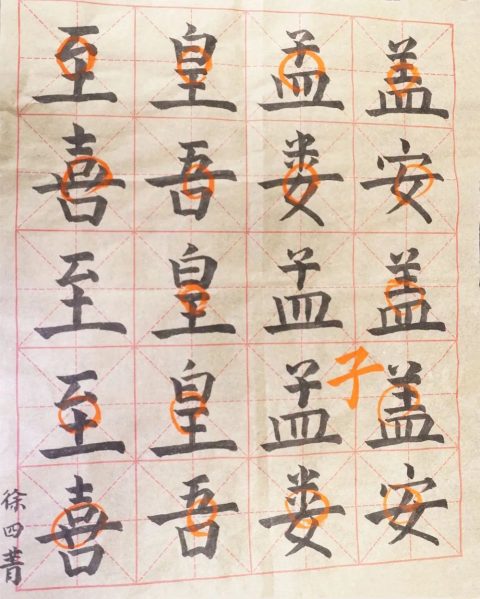 盖安盖盖安
孟娄孟孟娄
子
皇吾皇皇吾
至喜至至喜
徐四菁